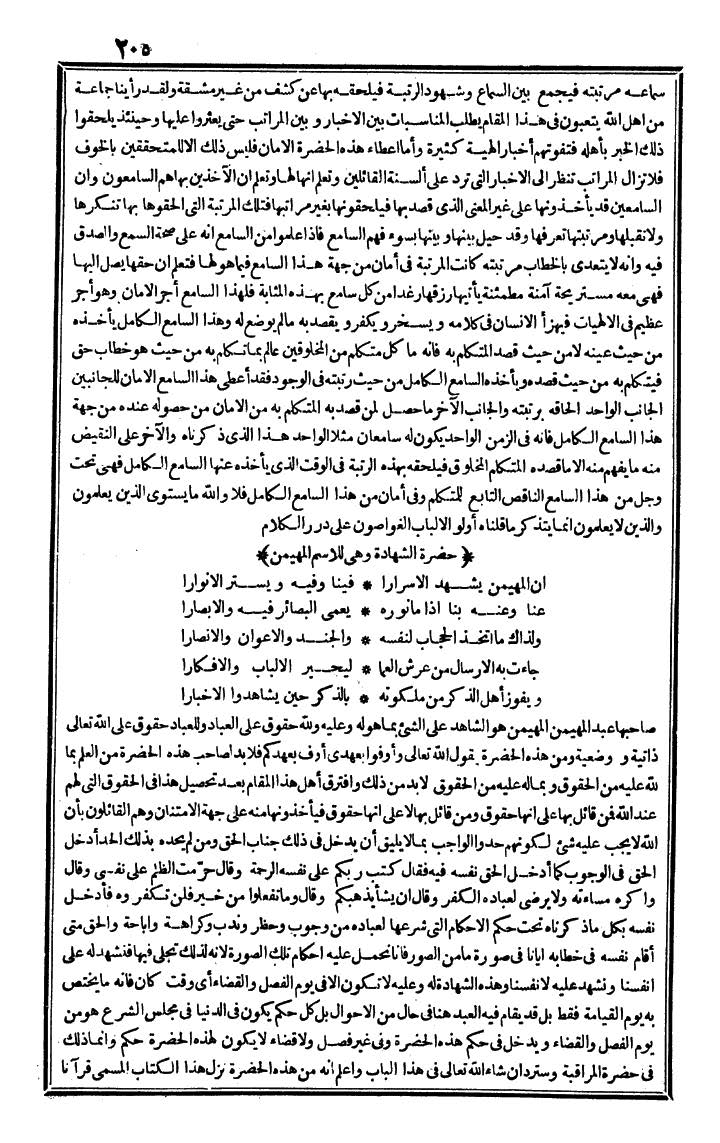 ٢٠٥
سماعه مرتبته فيجمع بين السماع وشهود الرتبة فيلحقه بها عن كشف من غير مشقة ولقد رأينا جماعة
من اهل الله يتعبون فى هذا المقام يطلب المناسبات بين الاخبار و بين المراتب حتى يعثروا عليها وحينئذ يلحقوا
ذلك الخبر بأهله فتفوتهم أخبار الهية كثيرة وأما اعطاء هذه الحضرة الامان فليس ذلك الا للمتحققين بالخوف
فلا تزال المراتب تنظر الى الاخبار التى ترد على ألسنة القائلين وتعلم انها لها وتعلم ان الآخذين بها هم السامعون وان
السامعين قد يأخذونها على غير المعنى الذى قصد بها فيلحقونها بغير مراتبها فتلك المرتبة التى الحقوها بها تنكرها
ولا تقبلها ومرتبتها تعرفها وقد حيل بينها وبينها بسوء فهم السامع فاذا علموا من السامع انه على صحة السمع والصدق
فيه وانه لا يتعدى بالخطاب مرتبته كانت المرتبة فى أمان من جهة هذا السامع فيما هو لها فتعلم ان حقها يصل اليها
فهى معه مستريحة آمنة مطمئنة يأتيها رزقها رغدا من كل سامع بهذه المثابة فلهذا السامع أجر الامان وهو أجر
عظيم فى الالهيات فيهزأ الانسان فى كلامه و يسخر و يكفر و يقصد به مالم يوضع له وهذا السامع الكامل يأخذه
من حيث عينه لا من حيث قصد المتكلم به فانه ما كل متكلم من المخلوقين عالم بما تكلم به من حيث هو خطاب حق
فيتكلم به من حيث قصده ويأخذه السامع الكامل من حيث رتبته فى الوجود فقد أعطى هذا السامع الامان للجانبين
الجانب الواحد الحاقه برتبته والجانب الآخر ما حصل لمن قصد به المتكلم به من الامان من حصوله عنده من جهة
هذا السامع الكامل فانه فى الزمن الواحد يكون له سامعان مثلا الواحد هذا الذى ذكرناه والآخر على النقيض
منه ما يفهم منه الا ما قصده المتكلم المخلوق فيلحقه بهذه الرتبة فى الوقت الذى يأخذه عنها السامع الكامل فهى تحت
وجل من هذا السامع الناقص التابع للمتكلم وفى أمان من هذا السامع الكامل فلا والله ما يستوى الذين يعلمون
والذين لا يعلمون انما يتذكر ما قلناه أولو الالباب الغواصون على درر الكلام
﴿حضرة الشهادة وهى للاسم المهيمن﴾
ان المهيمن يشهد الاسرارا * فينا وفيه و يستر الانوارا
عنا وعنه بنا اذا ما نوره * يعمى البصائر فيه والابصارا
ولذاك ما اتخذ الحجاب لنفسه * والجند والاعوان والانصارا
جاءت به الارسال من عرش العما * ليحير الالباب والافكارا
و يفوز أهل الذكر من ملكوته * بالذكر حين يشاهدوا الاخبارا
صاحبها عبد المهيمن المهيمن هو الشاهد على الشئ بما هو له وعليه ولله حقوق على العباد وللعباد حقوق على الله تعالى
ذاتية و وضعية ومن هذه الحضرة يقول الله تعالى وأوفوا بعهدى أوف بعهدكم فلا بد لصاحب هذه الحضرة من العلم بما
لله عليه من الحقوق و بماله عليه من الحقوق لا بد من ذلك وافترق أهل هذا المقام بعد تحصيل هذا فى الحقوق التى لهم
عند الله فن قائل بها على انها حقوق ومن قائل بها لا على انها حقوق فيأخذونها منه على جهة الامتنان وهم القائلون بأن
الله لا يجب عليه شئ لكونهم حدوا الواجب بما لا يليق أن يدخل فى ذلك جناب الحق ومن لم يحده بذلك الحد أدخل
الحق فى الوجوب كما أدخل الحق نفسه فيه فقال كتب ربكم على نفسه الرحمة وقال حرّمت الظلم على نفسى وقال
واكره مساءته ولا يرضى لعباده الكفر وقال ان يشأ يذهبكم وقال وما تفعلوا من خير فلن تكفروه فأدخل
نفسه بكل ما ذكرناه تحت حكم الاحكام التى شرعها لعباده من وجوب وحظر وندب وكراهة واباحة والحق متى
أقام نفسه فى خطابه ايانا فى صورة ما من الصور فانا نحمل عليه احكام تلك الصورة لانه لذلك تجلى فيها فنشهد له على
انفسنا ونشهد عليه لانفسنا وهذه الشهادة له وعليه لا تكون الا فى يوم الفصل والقضاء أى وقت كان فانه ما يختص
به يوم القيامة فقط بل قد يقام فيه العبد هنا فى حال من الاحوال بل كل حكم يكون فى الدنيا فى مجلس الشرع هو من
يوم الفصل والقضاء و يدخل فى حكم هذه الحضرة وفى غير فصل ولا قضاء لا يكون لهذه الحضرة حكم وانما ذلك
فى حضرة المراقبة وستردان شاء الله تعالى فى هذا الباب واعلم انه من هذه الحضرة نزل هذا الكتاب المسمى قرآنا